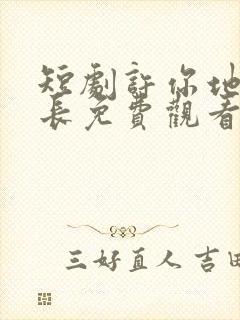 短劇許你地
長免費觀看
三好直人 吉田